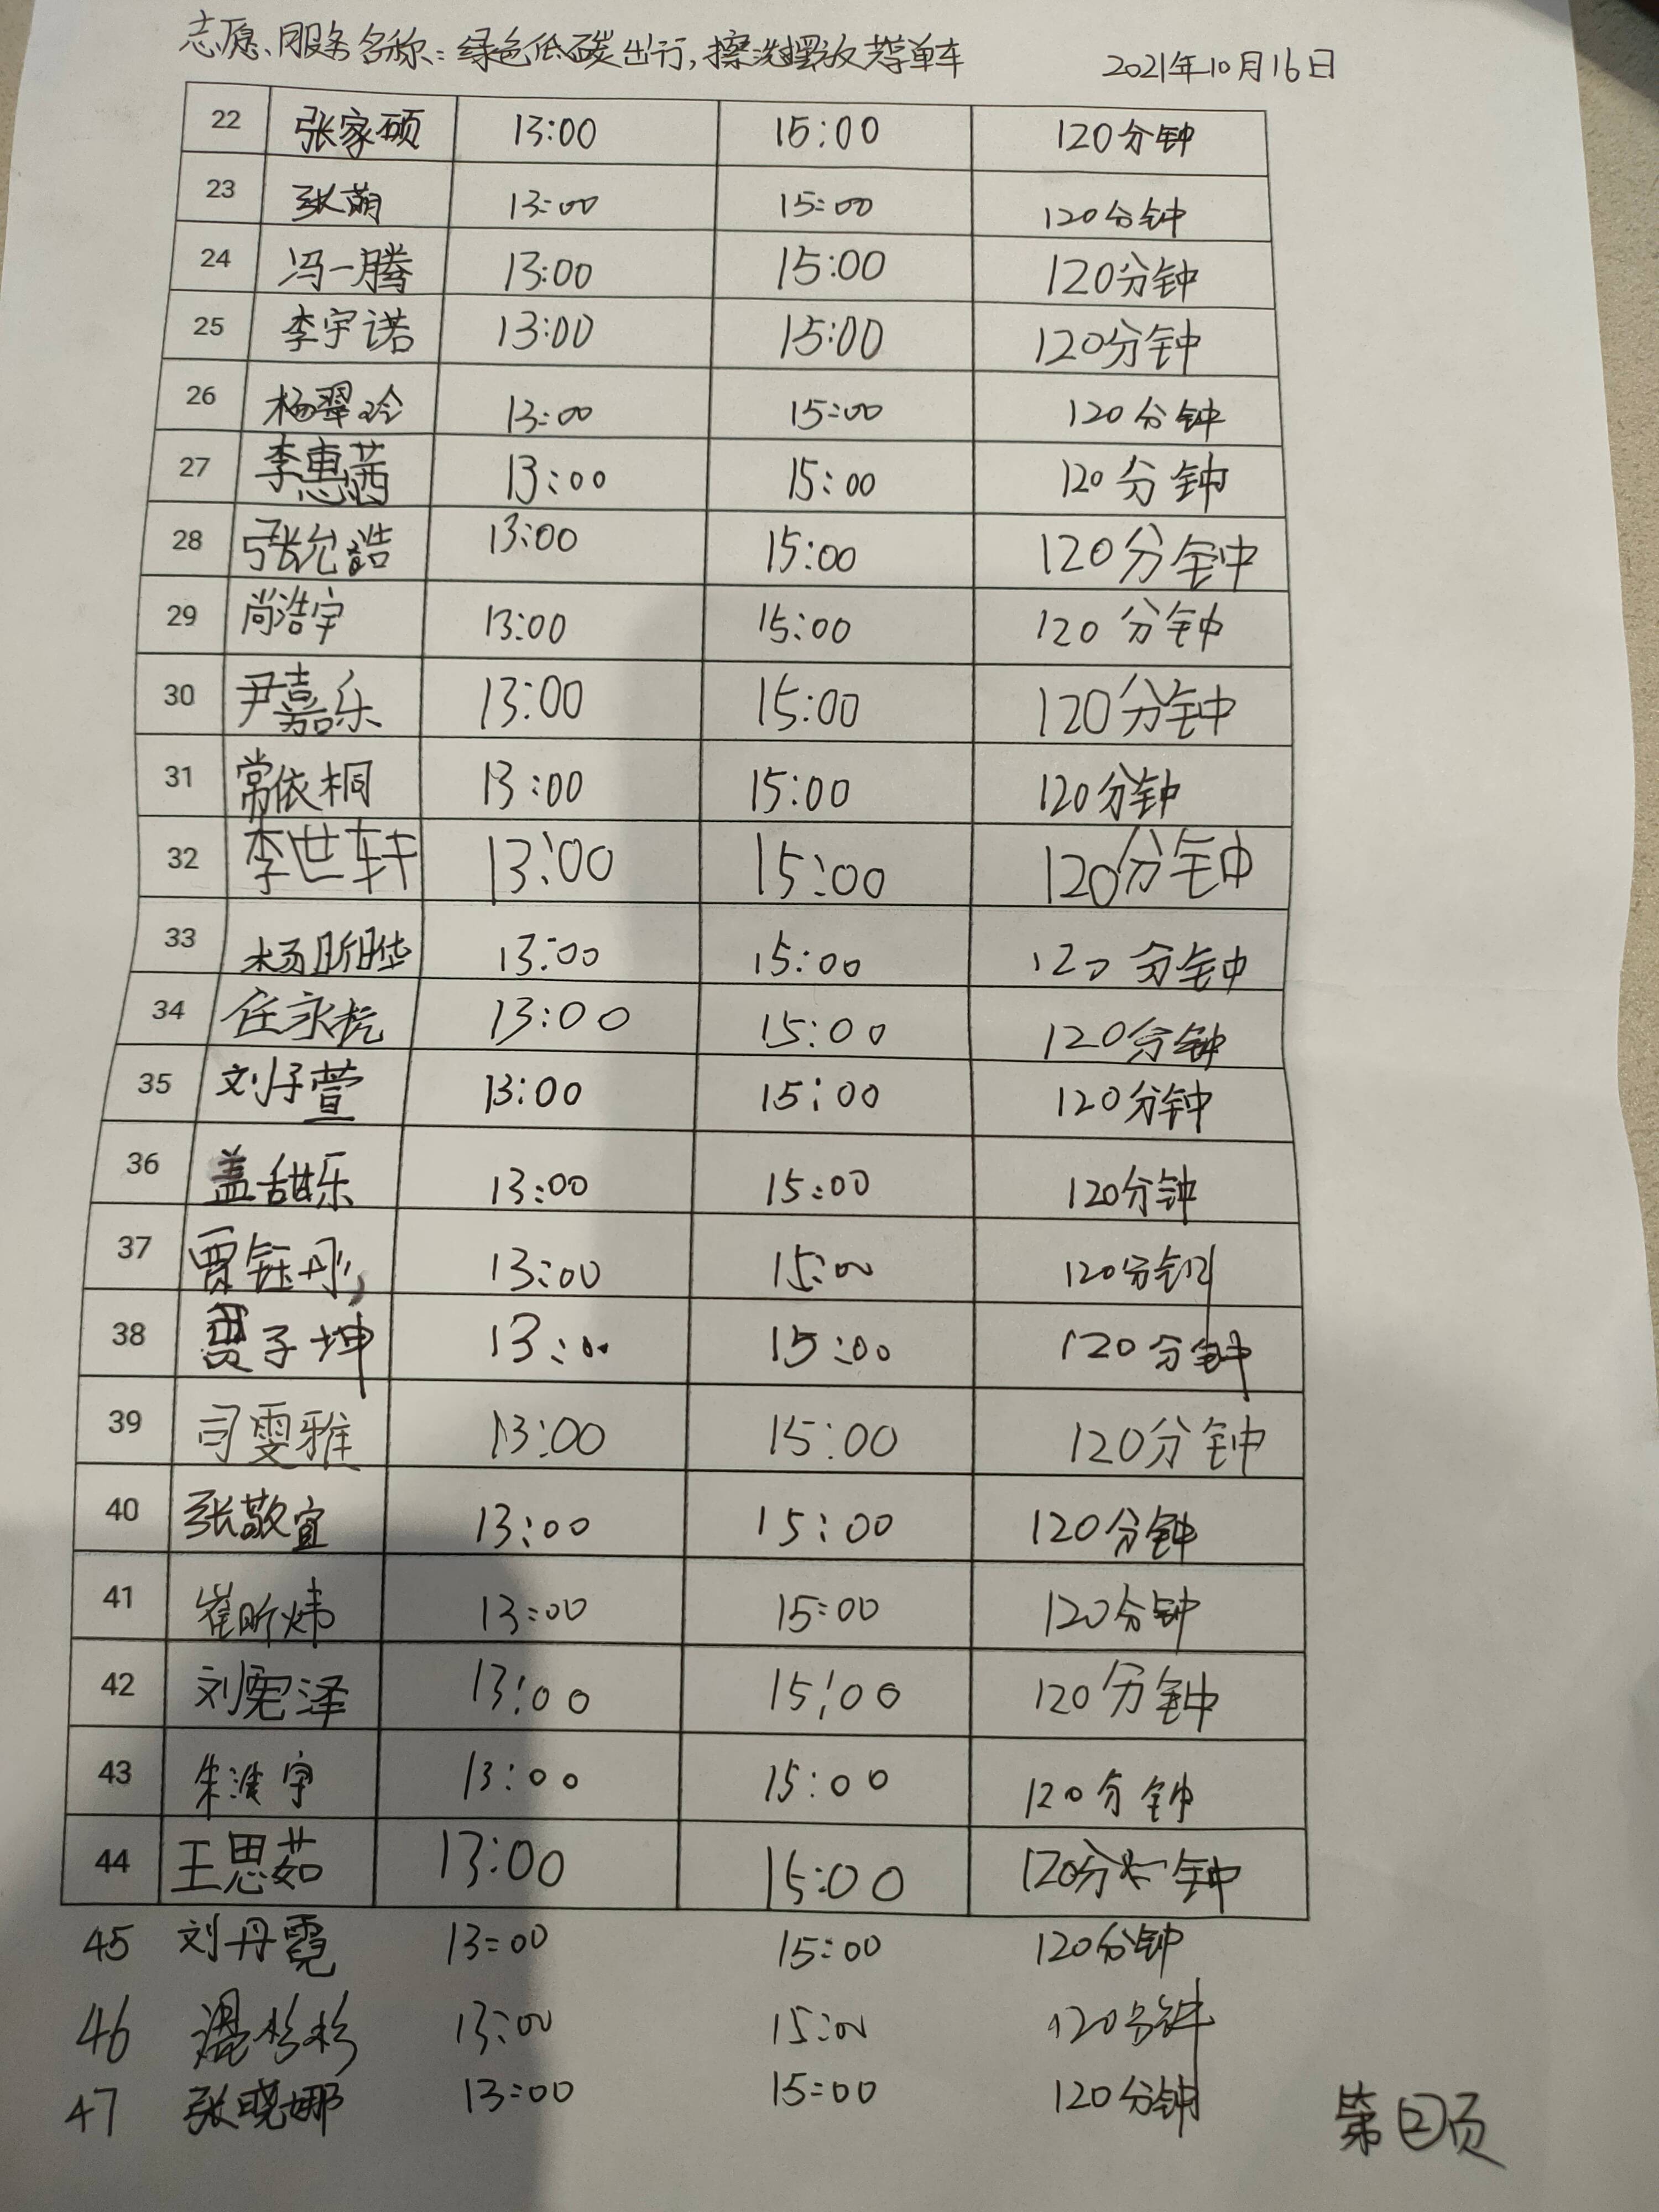 志愿服务名称：绿色低碳出行，擦洗摆放共享单车 2021年10月16日
22 张家硕 13:00 15:00 120分钟
23 张萌 13:00 15:00 120分钟
24 冯一腾 13:00 15:00 120分钟
25 李宇诺 13:00 15:00 120分钟
26 杨翠玲 13:00 15:00 120分钟
27 李惠茜 13:00 15:00 120分钟
28 张允誥 13:00 15:00 120分钟
29 尚浩宇 13:00 15:00 120分钟
30 尹嘉乐 13:00 15:00 120分钟
31 常依桐 13:00 15:00 120分钟
32 李世轩 13:00 15:00 120分钟
33 杨昕晔 13:00 15:00 120分钟
34 任永杭 13:00 15:00 120分钟
35 刘子萱 13:00 15:00 120分钟
36 盖甜乐 13:00 15:00 120分钟
37 贾钰彤 13:00 15:00 120分钟
38 贾子坤 13:00 15:00 120分钟
39 司雯雅 13:00 15:00 120分钟
40 张敬宜 13:00 15:00 120分钟
41 崔昕炜 13:00 15:00 120分钟
42 刘宪泽 13:00 15:00 120分钟
43 朱浚宇 13:00 15:00 120分钟
44 王思茹 13:00 15:00 120分钟
45 刘丹霓 13:00 15:00 120分钟
46 杉杉 13:00 15:00 120分钟
47 张晓娜 13:00 15:00 120分钟
第②页